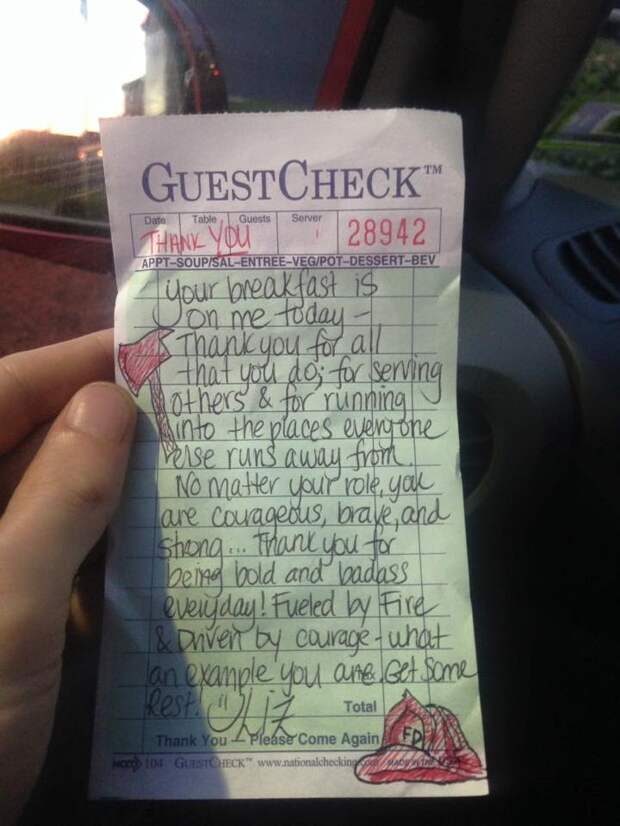 GUESTCHECK™
Date Table Guests Server
THANK YOU 28942
APPT-SOUP/SAL-ENTREE-VEG/POT-DESSERT-BEV
your breakfast is
on me today -
Thank you for all
that you do; for serving
others & for running
into the places everyone
else runs away from.
No matter your role, you
are courageous, brave, and
strong... Thank you for
being bold and badass
everyday! Fueled by Fire
& Driven by courage - what
an example you are. Get Some
Rest. Liz
Total
FD
Thank You — Please Come Again
104 GUESTCHECK™ www.nationalchecking.com MADE IN THE